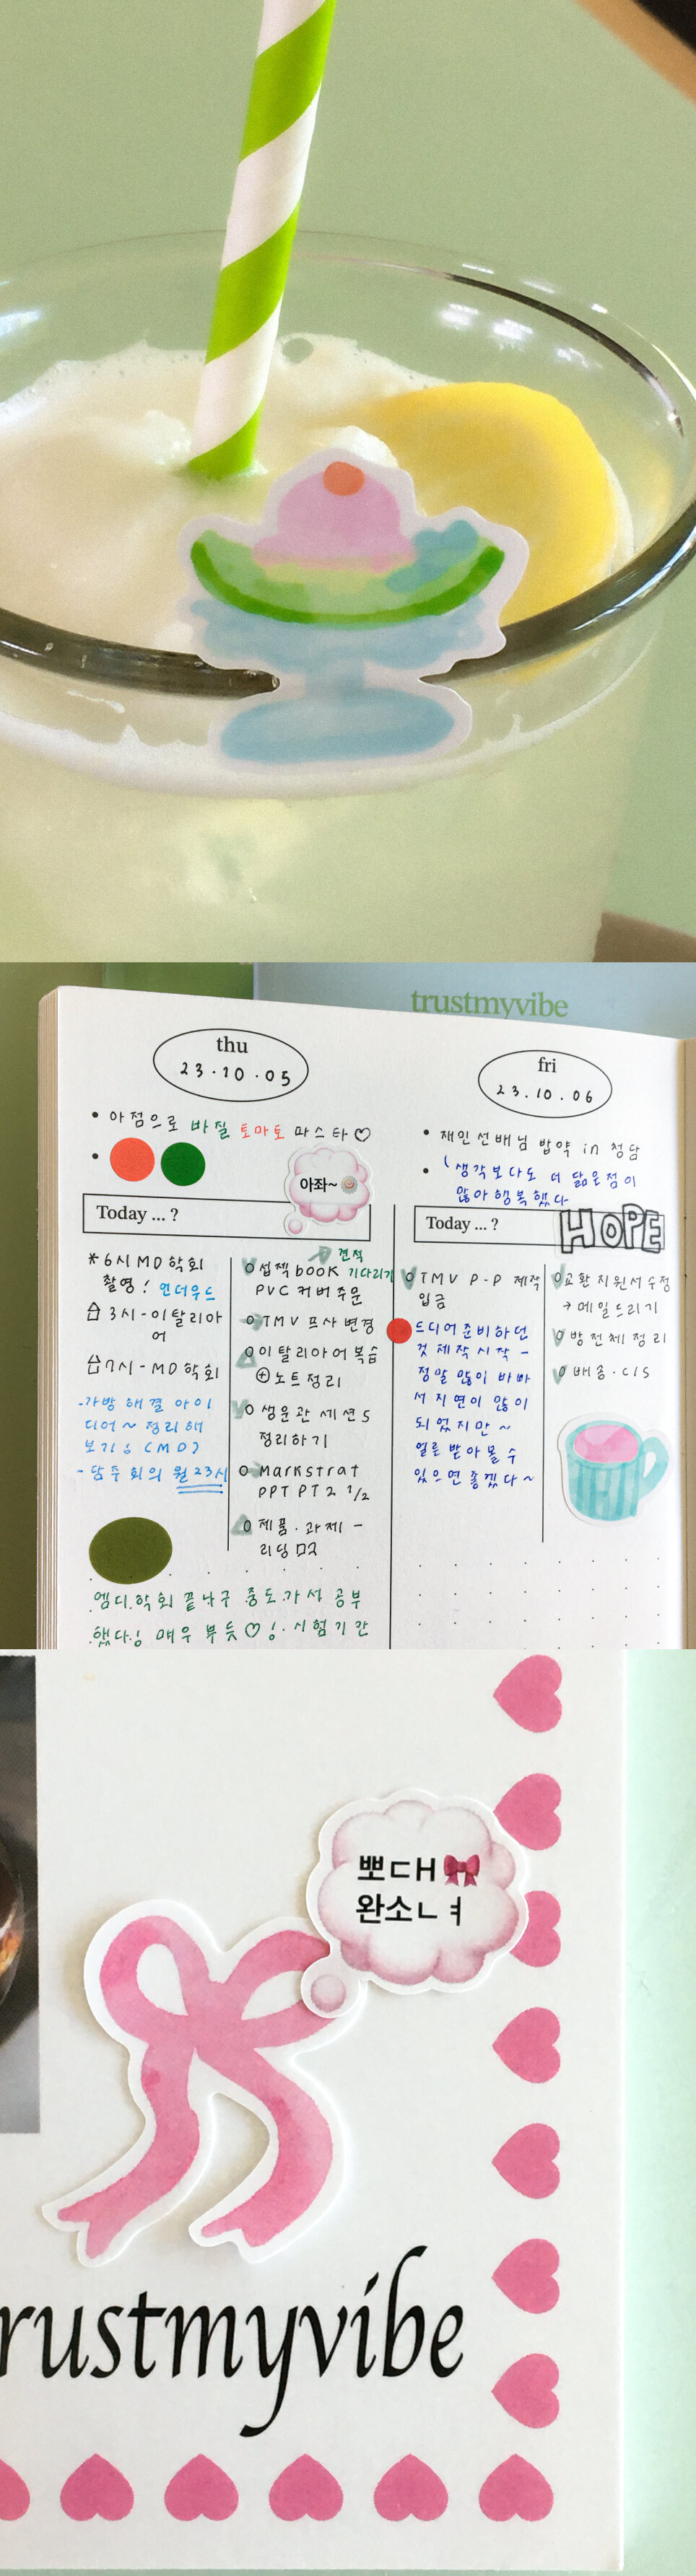 trustmyvibe
thu
23.10.05
• 아점으로 바질 토마토 파스타♡
•
아좌~
Today ... ?
* 6시 MD 학회
촬영! 언더우드
3시-이탈리아
어
7시-MD학회
-가방 해결 아이
디어~ 정리해
보기! (MD)
-담주 회의 월 23시
견적
기다리기
섭젝 book
PVC 커버 주문
TMV 프사 변경
이탈리아어 복습
⊕노트정리
생운관 세션 5
정리하기
Markstrat
PPT PT 2 1/2
제품. 과제 -
리딩
엠디.학회 끝나구 중도.가서 공부
했다! 매우 뿌듯♡! 시험기간
fri
23.10.06
• 재민선배님 밥약 in 청담
• 생각보다도 더 닮은점이
많아 행복했다
Today ... ?
HOPE
TMV P-P 제작
입금
드디어 준비하던
것 제작 시작 -
정말 많이 바빠
서 지연이 많이
되었지만 ~
얼른 받아볼 수
있으면 좋겠다~
교환지원서 수정
→ 메일드리기
방 전체 정리
배송.C/S
뽀ㄷH
완소ㄴㅕ
rustmyvibe